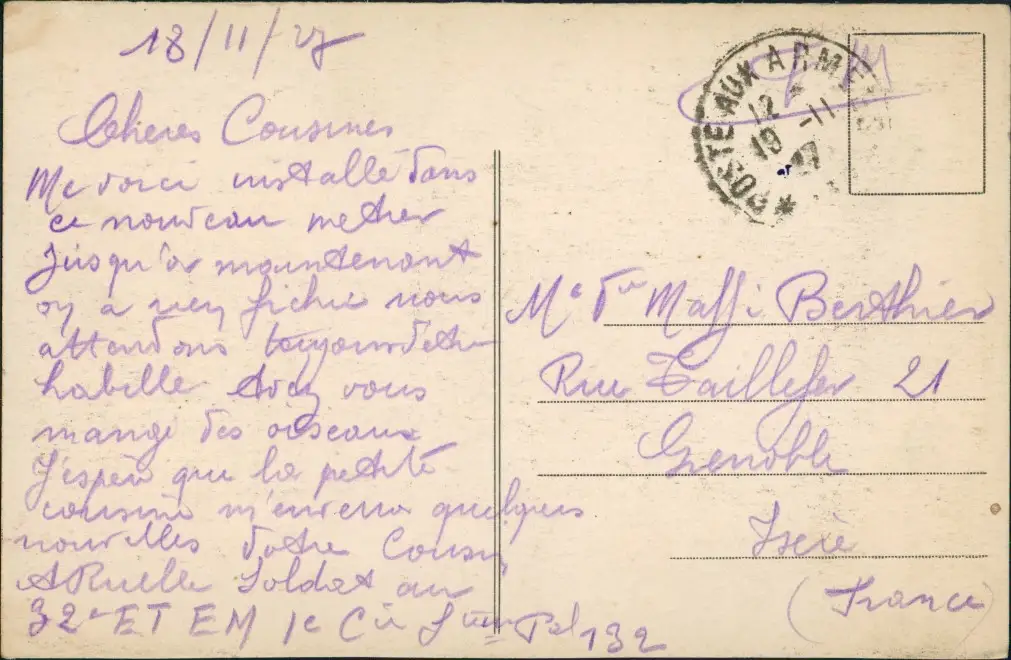 18/11/27
Chères Cousines
Me voici installé dans
ce nouveau metier
Jusqu'à maintenant
on a rien fichu nous
attendons toujours d'etre
habillé Avez vous
mangé des oiseaux
J'espère que la petite
cousine m'enverra quelques
nouvelles Votre Cousin
A Ruelle Soldat au
32e ET EM 1e Cie
Pal 132
POSTE AUX ARMEES
12
19 -11
27
Maffi Berthier
Rue Taillefer 21
Grenoble
Isère
(France)